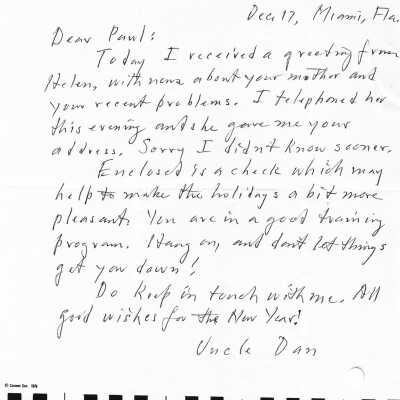 Dec 17, Miami, Fla.
Dear Paul:
Today I received a greeting from
Helen, with news about your mother and
your recent problems. I telephoned her
this evening and she gave me your
address. Sorry I didn't know sooner.
Enclosed is a check which may
help to make the holidays a bit more
pleasant. You are in a good training
program. Hang on, and don't let things
get you down!
Do keep in touch with me. All
good wishes for the New Year!
Uncle Dan